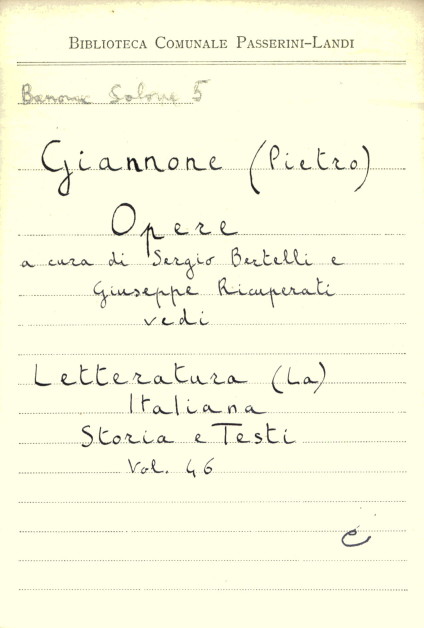 BIBLIOTECA COMUNALE PASSERINI-LANDI
Salone 5
Giannone (Pietro)
Opere
a cura di Sergio Bertelli e
Giuseppe Ricuperati
vedi
Letteratura (La)
Italiana
Storia e Testi
Vol. 46